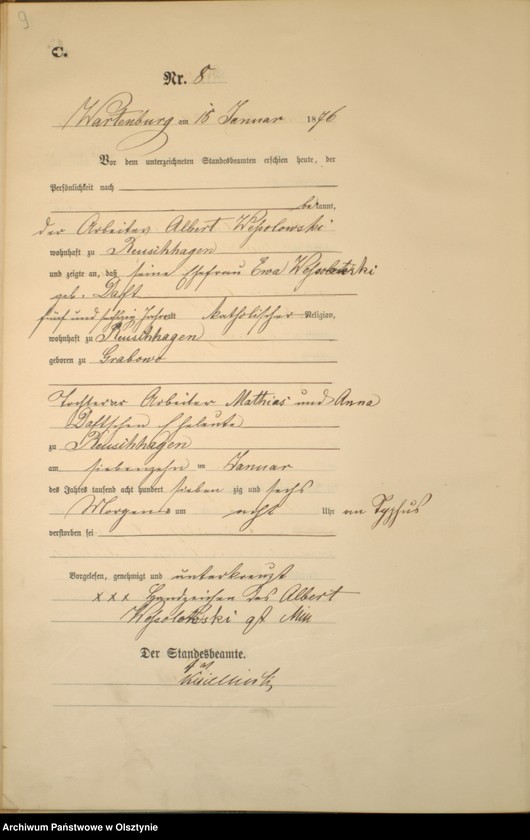 9
C.
Nr. 8
Wartenburg am 18 Januar 1876
Vor dem unterzeichneten Standesbeamten erschien heute, der
Persönlichkeit nach
bekannt,
der Arbeiter Albert Wesolowski
wohnhaft zu Reuschhagen
und zeigte an, daß seine Ehefrau Ewa
geb. Daft
fünf und sechzig Jahre alt katholischer Religion,
wohnhaft zu Reuschhagen
geboren zu Grabowo
Tochter der Arbeiter Mathias und Anna
Daftschen Eheleute
zu Reuschhagen
am siebenzehn ten Januar
des Jahres tausend acht hundert sieben zig und sechs
Morgens um acht Uhr am Typhus
verstorben sei
Vorgelesen, genehmigt und unterkreuzt
x x x Handzeichen des Albert
Der Standesbeamte.
Archiwum Państwowe w Olsztynie